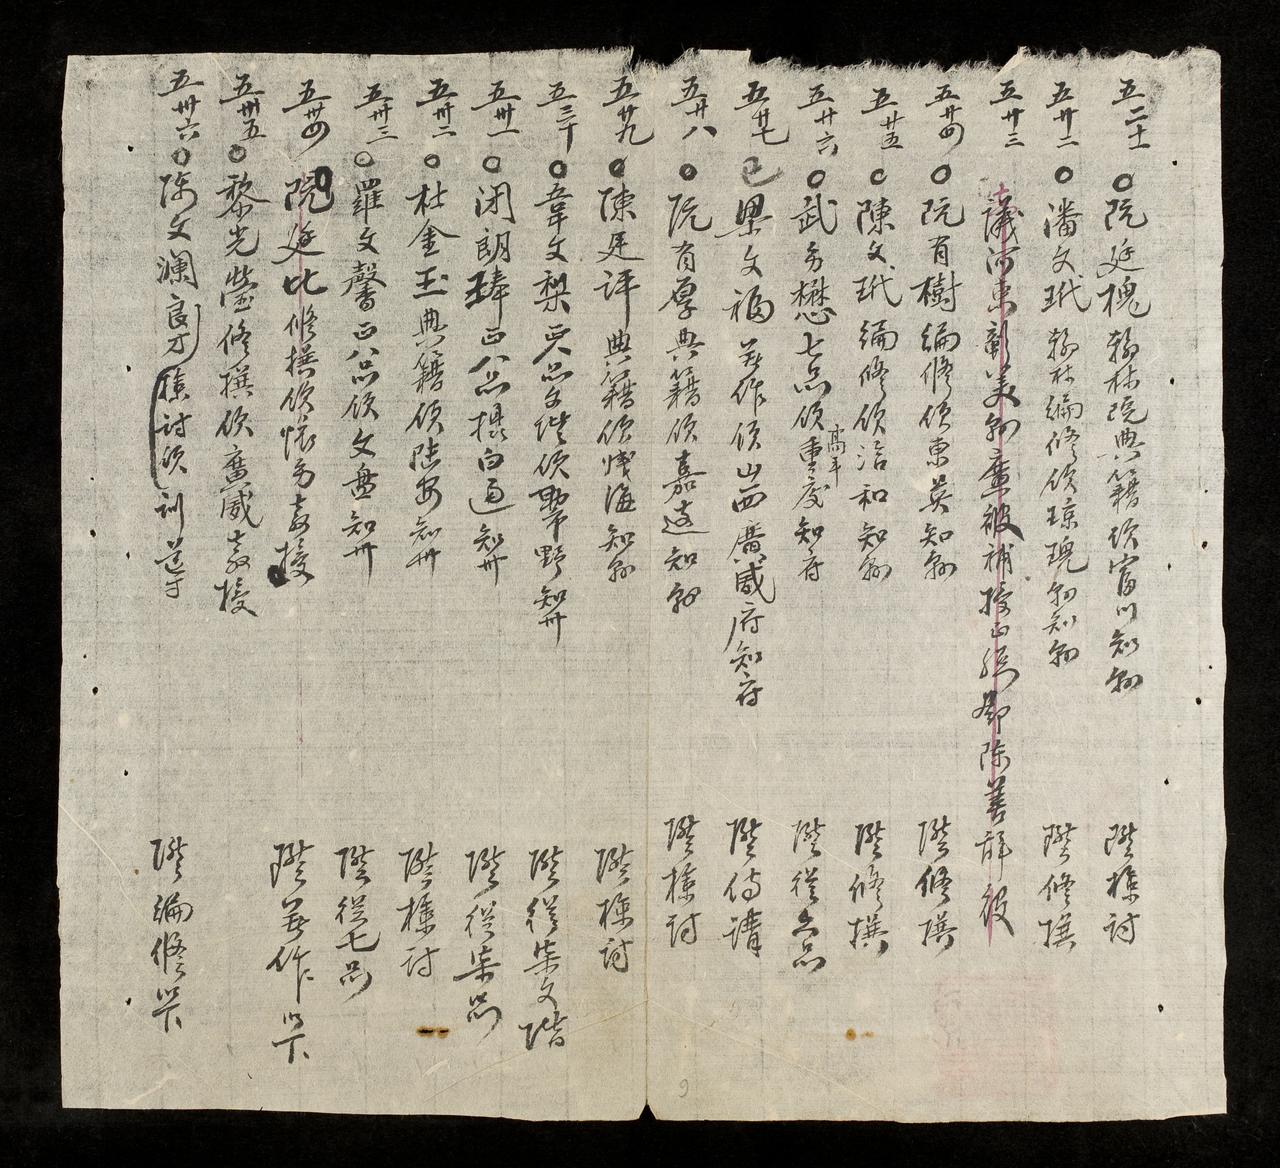 五二十一 阮廷槐翰林院典籍領富川知縣 陞檢討
五廿二 潘文玳翰林編修領琼瑰知縣 陞修撰
五廿三 議河東彰美縣 被補授正 陳善辞 被
五廿四 阮有樹編修領東英知縣 陞修撰
五廿五 陳文玳編修領洽和知縣 陞修撰
五廿六 武 懋七品領重慶知府 高平 陞從六品
五廿七 梁文福著作領山西廣威府知府 陞侍講
五廿八 阮有厚典籍領嘉遠知縣 陞檢討
五廿九 陳廷評典籍領 海知縣 陞檢討
五三十 韋文梨 品文階領 野知州 陞從柒文階
五卅一 闭朗琫正八品摄白通知州 陞從柒品
五卅二 杜金玉典籍領陸安知州 陞檢討
五卅三 羅文馨正八品領文盤知州 陞從七品
五卅四 阮廷比修撰領 教授 陞著作 以下
五卅五 黎光瑩修撰領廣威教授
五卅六 陳文瀾 檢討領訓導 陞編修 以下
9